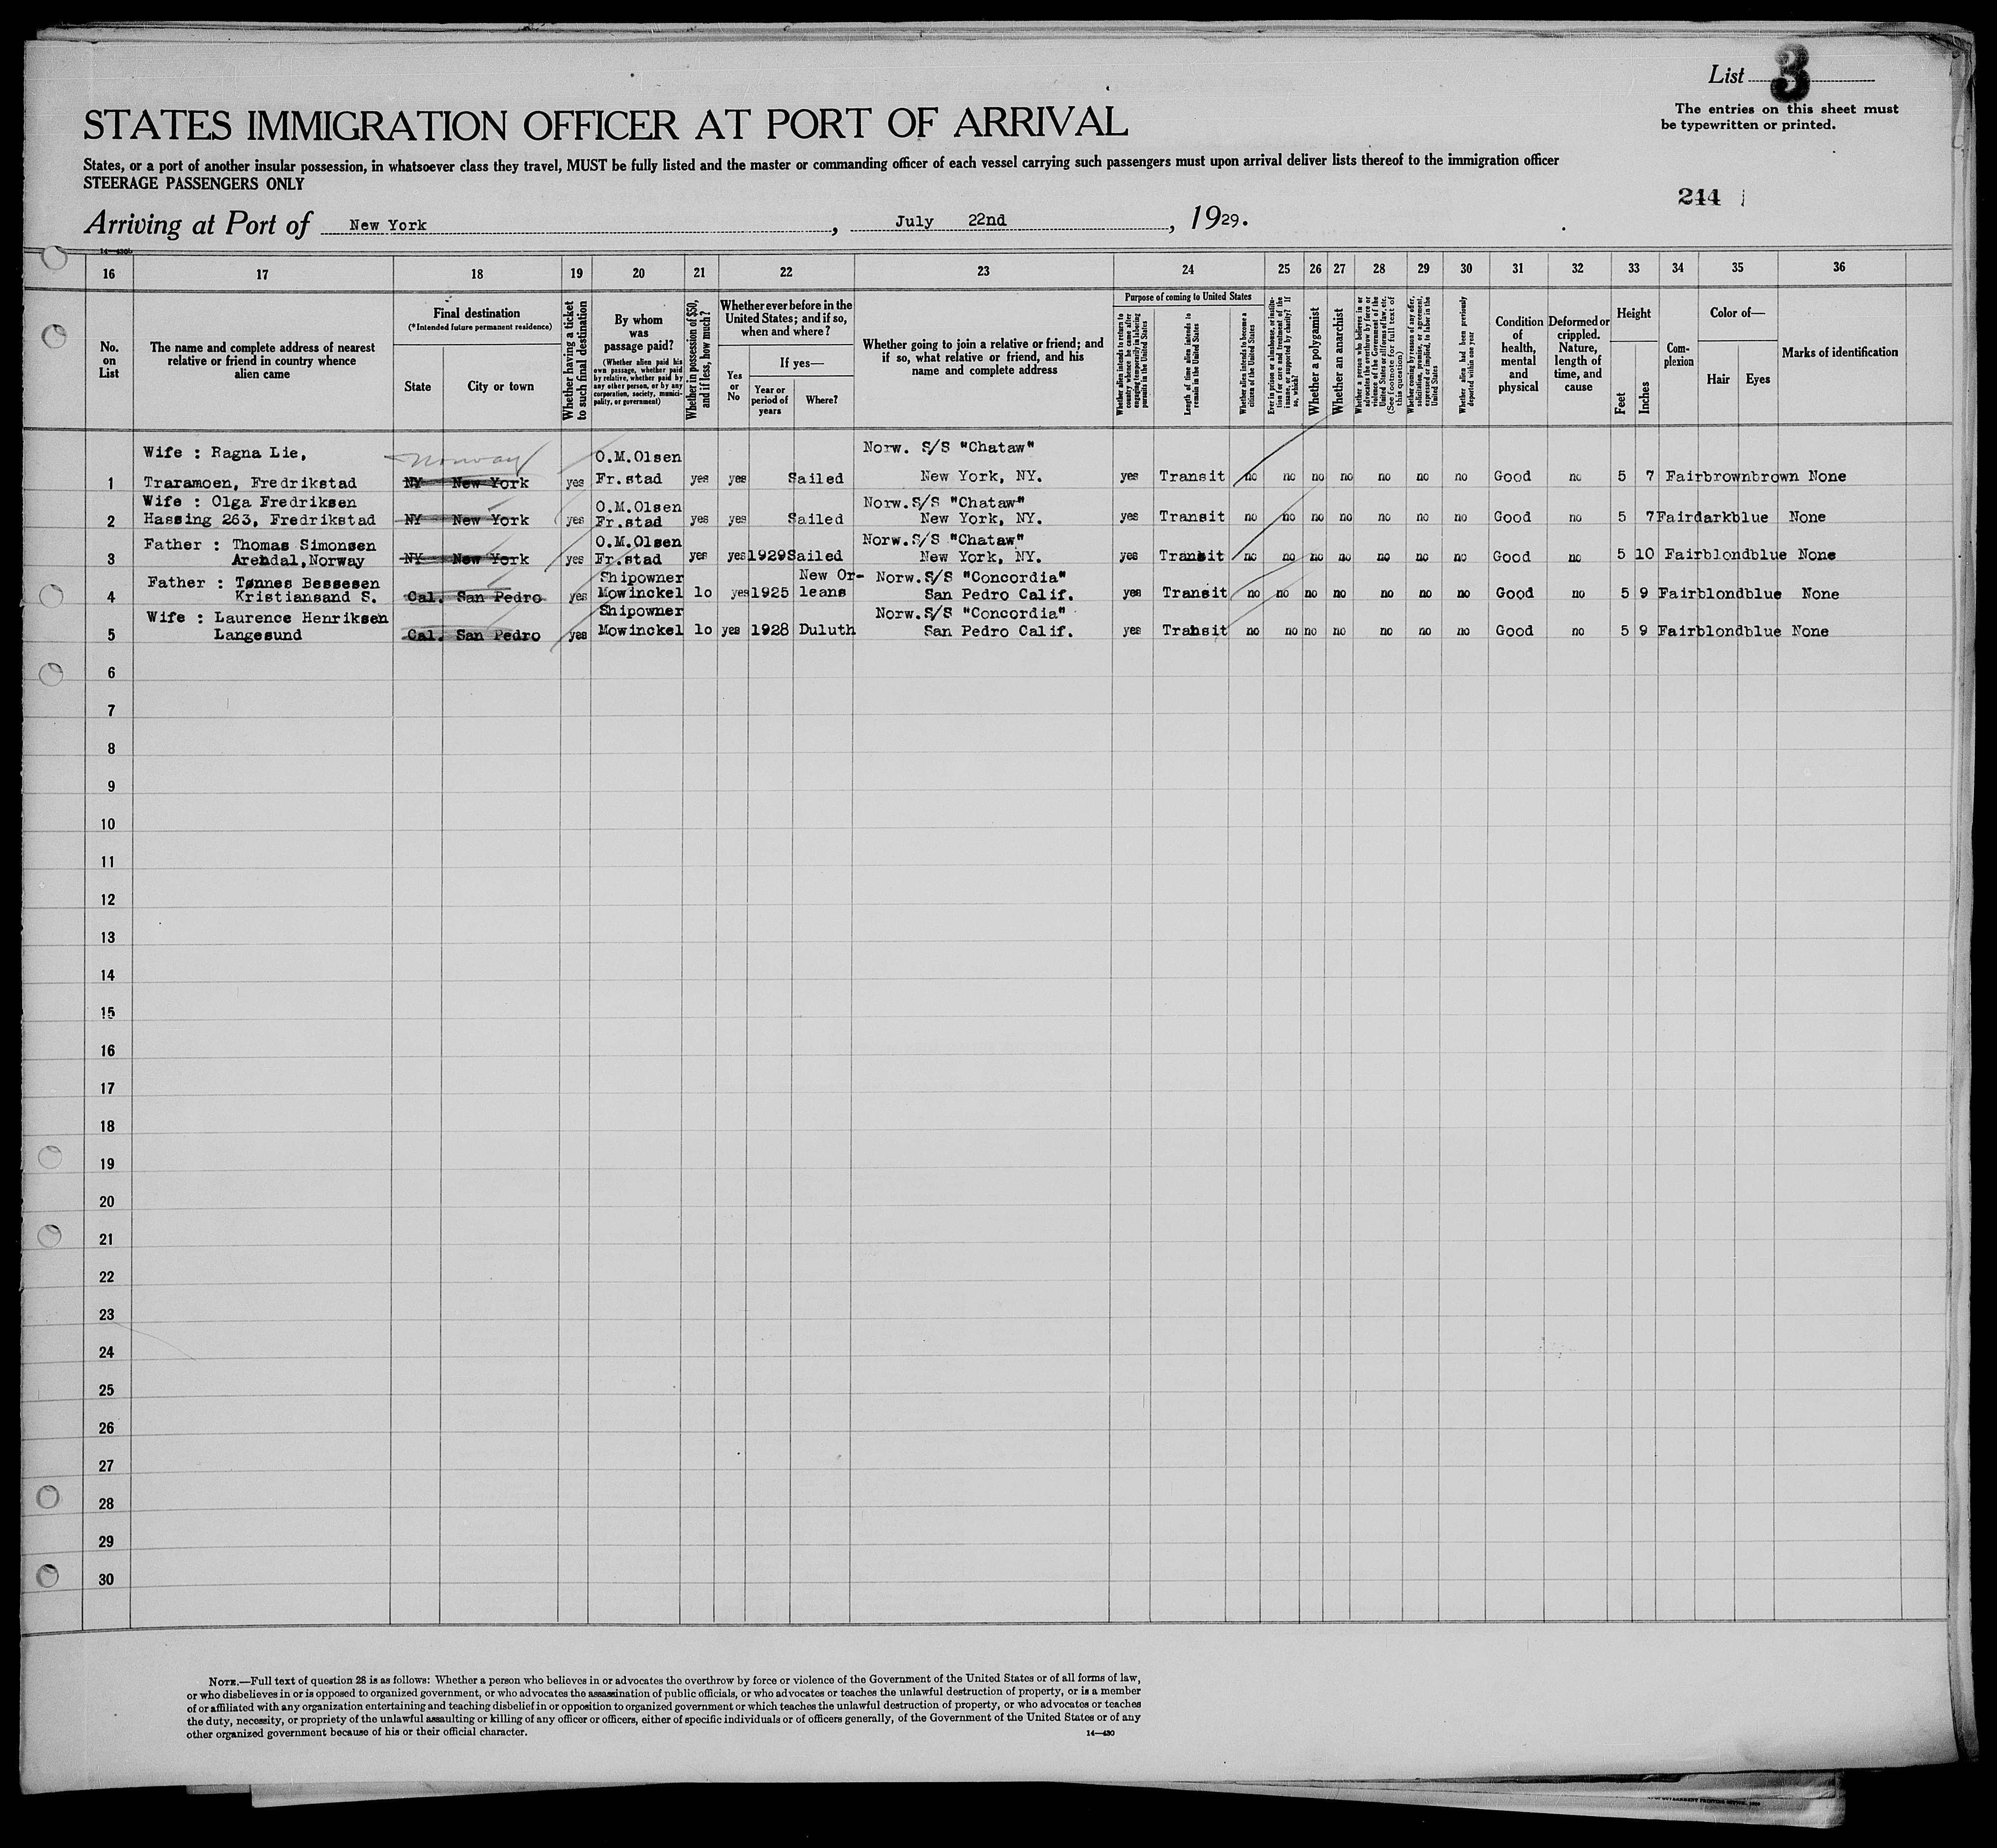 List 3
The entries on this sheet must
be typewritten or printed.
STATES IMMIGRATION OFFICER AT PORT OF ARRIVAL
States, or a port of another insular possession, in whatsoever class they travel, MUST be fully listed and the master or commanding officer of each vessel carrying such passengers must upon arrival deliver lists thereof to the immigration officer
STEERAGE PASSENGERS ONLY
244
Arriving at Port of New York, July 22nd, 1929.
14—430b
16 17 18 19 20 21 22 23 24 25 26 27 28 29 30 31 32 33 34 35 36
No. on List
The name and complete address of nearest relative or friend in country whence alien came
Final destination
(*Intended future permanent residence)
State
City or town
Whether having a ticket to such final destination
By whom was passage paid?
(Whether alien paid his own passage, whether paid by relative, whether paid by any other person, or by any corporation, society, municipality, or government)
Whether in possession of $50, and if less, how much?
Whether ever before in the United States; and if so, when and where?
Yes or No
If yes—
Year or period of years
Where?
Whether going to join a relative or friend; and if so, what relative or friend, and his name and complete address
Purpose of coming to United States
Whether alien intends to return to country whence he came after engaging temporarily in laboring pursuits in the United States
Length of time alien intends to remain in the United States
Whether alien intends to become a citizen of the United States
Ever in prison or almshouse, or institution for care and treatment of the insane, or supported by charity? If so, which?
Whether a polygamist
Whether an anarchist
Whether a person who believes in or advocates the overthrow by force or violence of the Government of the United States or all forms of law, etc. (See footnote for full text of this question)
Whether coming by reason of any offer, solicitation, promise, or agreement, expressed or implied, to labor in the United States
Whether alien had been previously deported within one year
Condition of health, mental and physical
Deformed or crippled. Nature, length of time, and cause
Height
Feet
Inches
Com-plexion
Color of—
Hair
Eyes
Marks of identification
Norway
Wife : Ragna Lie, O.M.Olsen Norw. S/S "Chataw"
1 Traramoen, Fredrikstad NY New York yes Fr.stad yes yes Sailed New York, NY. yes Transit no no no no no no no Good no 5 7 Fair brown brown None
Wife : Olga Fredriksen O.M.Olsen Norw.S/S "Chataw"
2 Hassing 263, Fredrikstad NY New York yes Fr.stad yes yes Sailed New York, NY. yes Transit no no no no no no no Good no 5 7 Fair dark blue None
Father : Thomas Simonsen O.M.Olsen Norw.S/S "Chataw"
3 Arendal,Norway NY New York yes Fr.stad yes yes 1929 Sailed New York, NY. yes Transit no no no no no no no Good no 5 10 Fair blond blue None
Father : Tønnes Bessesen Shipowner New Or- Norw.S/S "Concordia"
4 Kristiansand S. Cal. San Pedro yes Mowinckel lo yes 1925 leans San Pedro Calif. yes Transit no no no no no no no Good no 5 9 Fair blond blue None
Wife : Laurence Henriksen Shipowner Norw.S/S "Concordia"
5 Langesund Cal. San Pedro yes Mowinckel lo yes 1928 Duluth San Pedro Calif. yes Transit no no no no no no no Good no 5 9 Fair blond blue None
6
7
8
9
10
11
12
13
14
15
16
17
18
19
20
21
22
23
24
25
26
27
28
29
30
NOTE.—Full text of question 28 is as follows: Whether a person who believes in or advocates the overthrow by force or violence of the Government of the United States or of all forms of law,
or who disbelieves in or is opposed to organized government, or who advocates the assassination of public officials, or who advocates or teaches the unlawful destruction of property, or is a member
of or affiliated with any organization entertaining and teaching disbelief in or opposition to organized government or which teaches the unlawful destruction of property, or who advocates or teaches
the duty, necessity, or propriety of the unlawful assaulting or killing of any officer or officers, either of specific individuals or of officers generally, of the Government of the United States or of any
other organized government because of his or their official character.
14—430